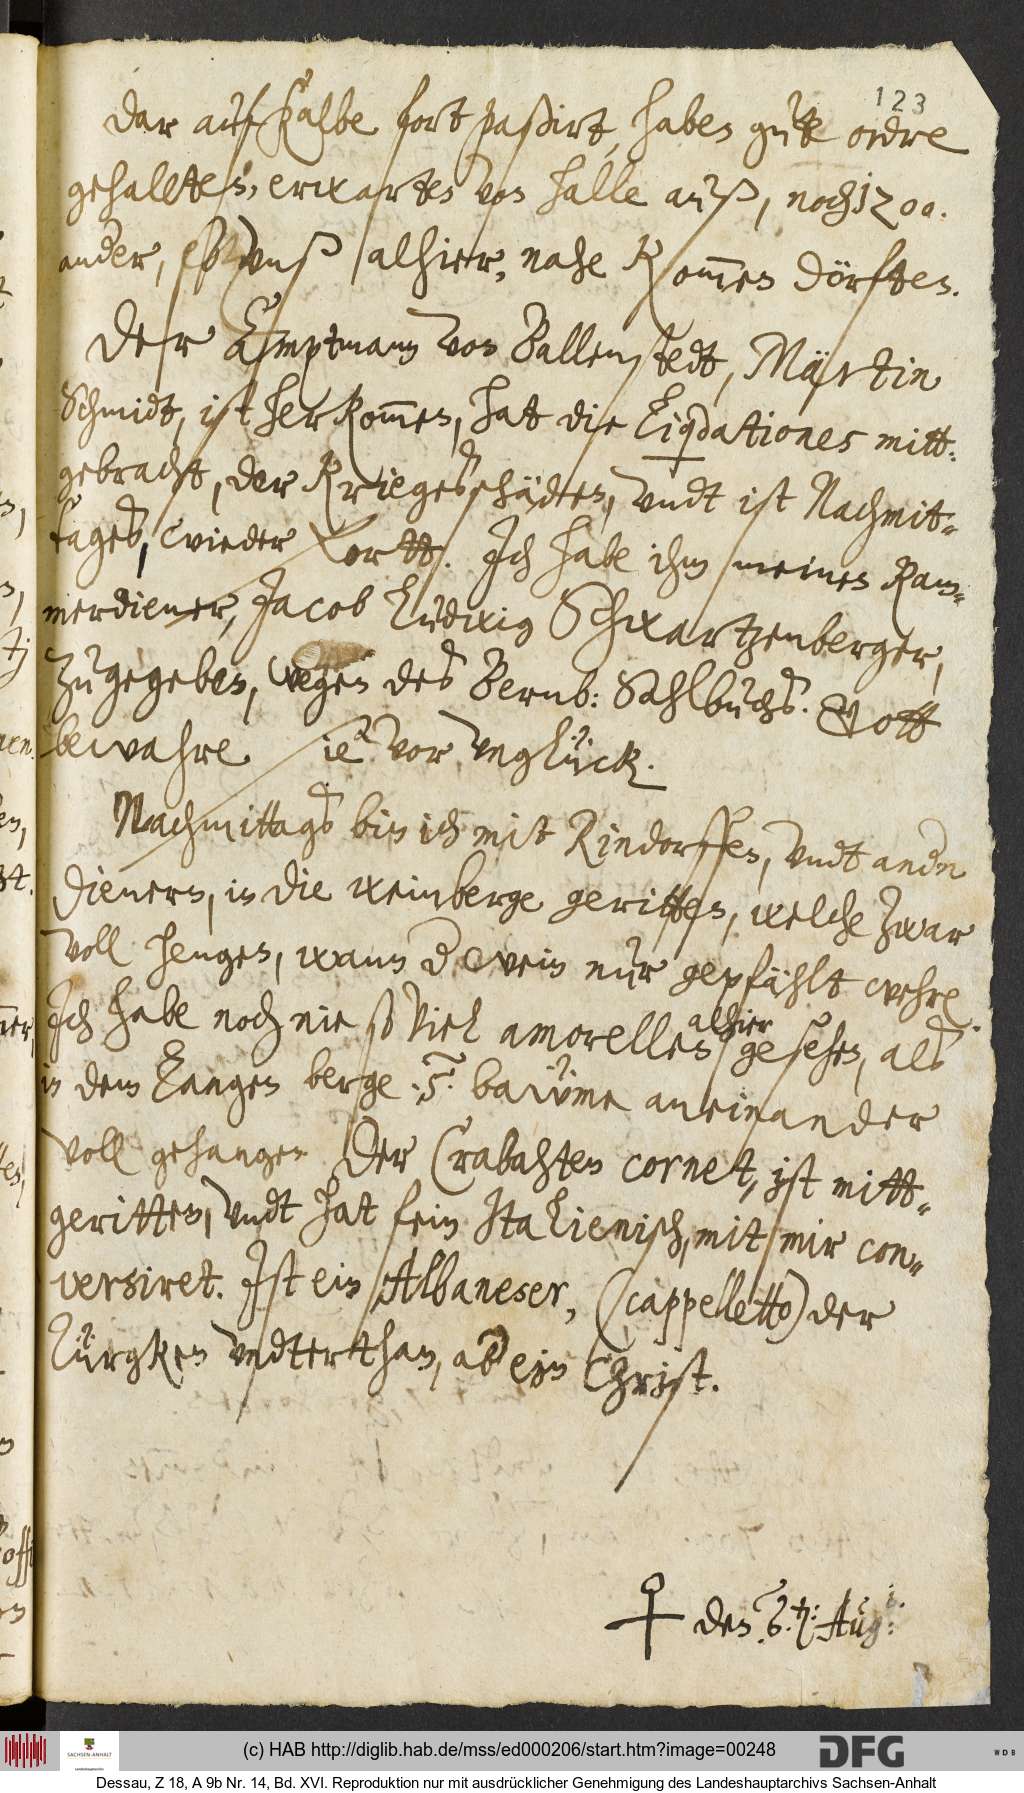 123
dar auf Kalbe fort paßirt, haben gute ordre
gehallten, erwarten von Halle auß, noch 1200.
ander, so unß alhier, nahe kommen dörften.
Der Amptmann von Ballenstedt, Märtin
Schmidt, ist herkommen, hat die Liq̃dationes mitt-
gebracht, der Kriegesschäden, undt ist Nachmit-
tages, wieder fortt. Ich habe ihm meinen Kam-
merdiener, Jacob Ludwig Schwartzenberger,
zugegeben, wegen des Bernb: Sahlbuchs. Gott
bewahre sie vor unglück.
Nachmittags bin ich mit Rindorffen, undt andn
dienern, in die weinberge geritten, welche zwar
voll hengen, wann d wein nur gepfählt wehre.
Ich habe noch nie so viel amorellen alhier gesehen, als
in dem Langen berge .5. baüme aneinander
voll gehangen. Der Crabahten cornet, ist mitt-
geritten, undt hat fein Italienisch, mit mir con-
versiret. Ist ein Albaneser, (cappelletto) der
Türgken undterthan, ab ein Christ.
den 6. Aug:
(c) HAB http://diglib.hab.de/mss/ed000206/start.htm?image=00248
SACHSEN-ANHALT
DFG
WDB
Dessau, Z 18, A 9b Nr. 14, Bd. XVI. Reproduktion nur mit ausdrücklicher Genehmigung des Landeshauptarchivs Sachsen-Anhalt